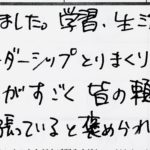 ました。学習、生活
ーダーシップとりまくり
がすごく皆の頼
張っていると褒められ